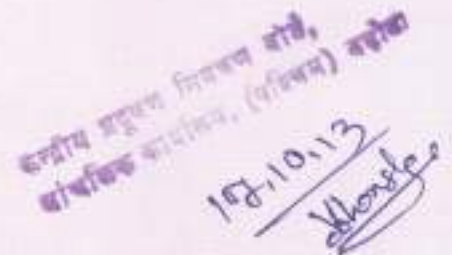 केन्द्रीय प्रदूषण नियंत्रण बोर्ड,
आंचलिक कार्यालय, (पश्चिम) वड़ोदरा
17.10.13